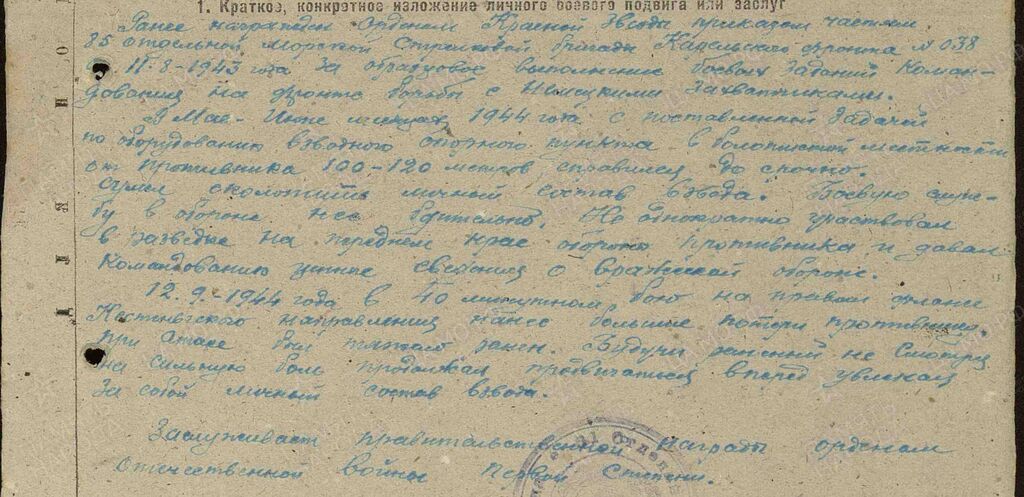 1. Краткое, конкретное изложение личного боевого подвига или заслуг
Ранее награжден Орденом Красной Звезды приказом частям
85 отдельной морской Стрелковой бригады Карельского фронта № 038
11-8-1943 года за образцовое выполнение боевых заданий Коман-
дования на фронте борьбы с немецкими захватчиками.
В Мае-Июне месяцах 1944 года с поставленной задачей
по оборудованию взводного опорного пункта в болотистой местности
от противника 100-120 метров справился до срочно.
Сумел сколотить личный состав взвода. Боевую служ-
бу в обороне нес бдительно. Не однократно участвовал
в разведке на переднем крае обороны противника и давал
Командованию ценные сведения о вражеской обороне.
12.9-1944 года в 40 минутном бою на правом фланге
Кестеньгского направления нанес большие потери противнику.
При атаке был тяжело ранен. Будучи раненый не смотря
на сильную боль продолжал продвигаться вперед увлекая
за собой личный состав взвода.
Заслуживает правительственной награды орденом
Отечественной войны Первой Степени.